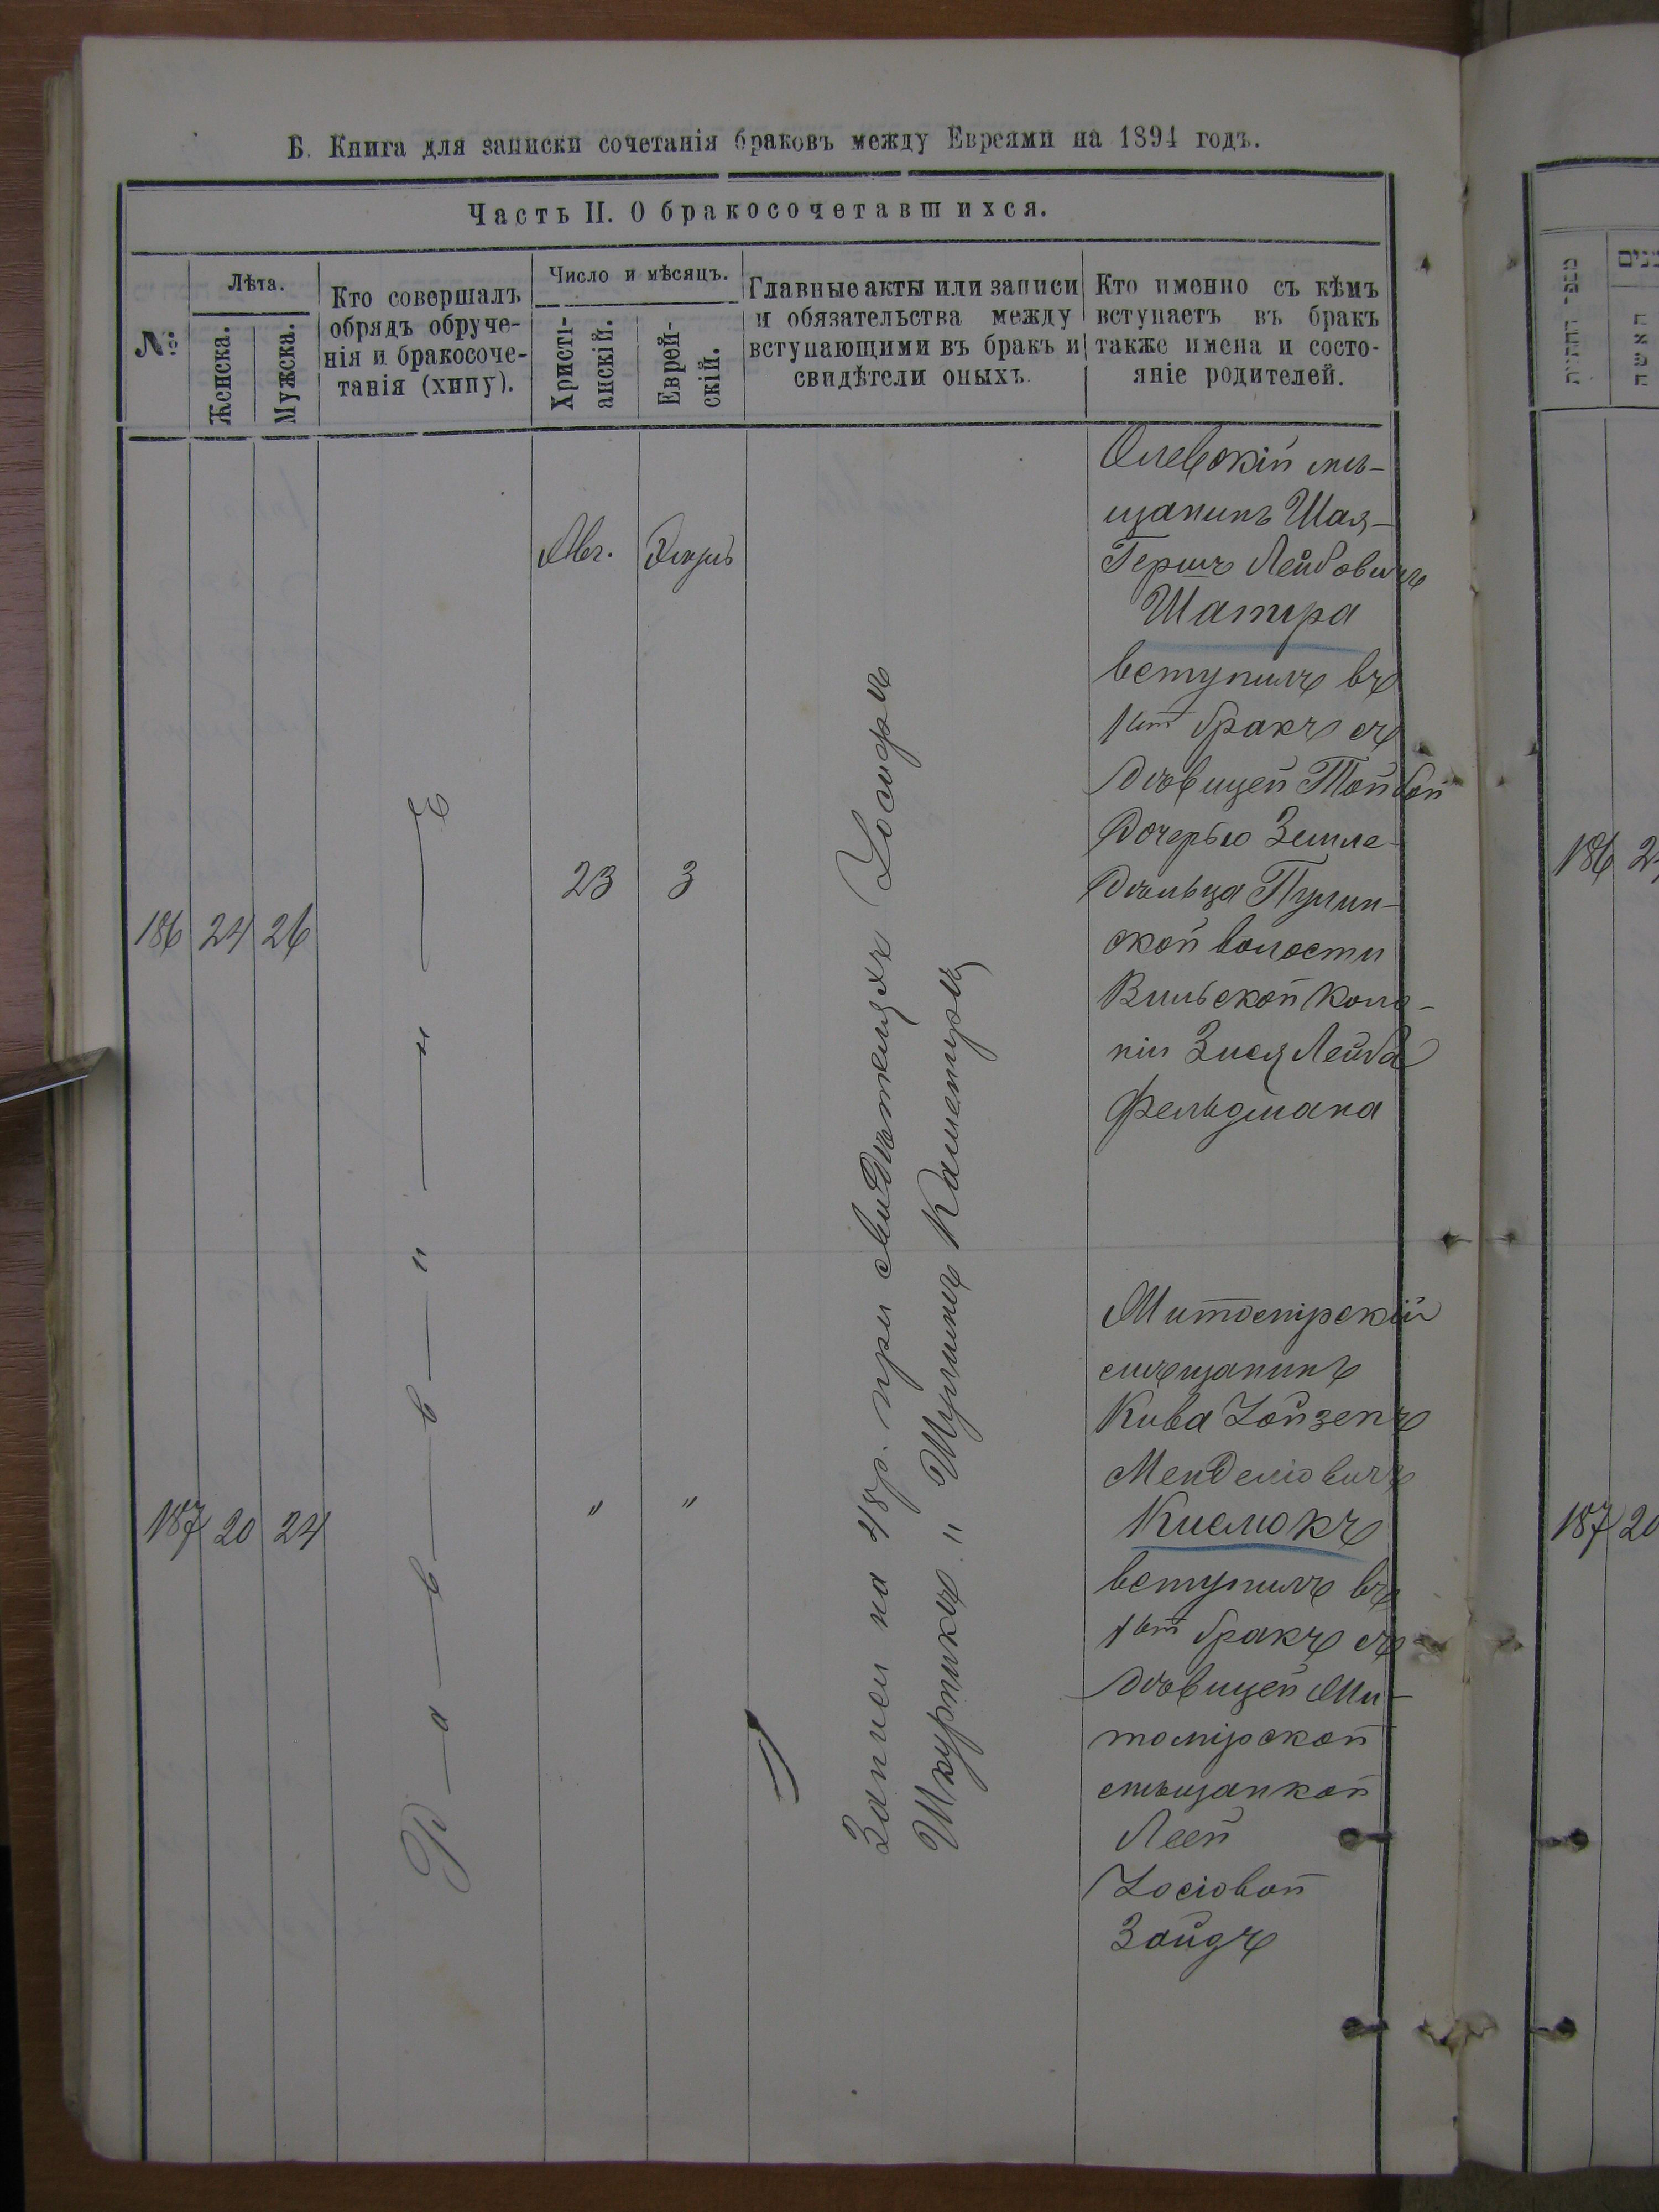 Б. Книга для записки сочетанія браковъ между Евреями на 1894 годъ.
Часть II. О бракосочетавшихся.
№
Лѣта.
Женска.
Мужска.
Кто совершалъ
обрядъ обруче-
нія и бракосоче-
танія (хипу).
Число и мѣсяцъ.
Христі-
анскій.
Еврей-
скій.
Главные акты или записи
и обязательства между
вступающими въ бракъ и
свидѣтели оныхъ.
Кто именно съ кѣмъ
вступаетъ въ бракъ
также имена и состо-
яніе родителей.
186 24 26
Р—а—в—в—и—н—ъ
Авг. Элулъ
23 3
Запись на 48 р. при свидѣтеляхъ Іосифъ
Шкурникъ " Шулимъ
Олевскій мѣ-
щанинъ Шая-
Гершъ Лейбовичъ
Шатра
вступилъ въ
1ый бракъ съ
дѣвицей Тойбой
дочерью Земле-
дѣльца Пулин-
ской волости
Вильской коло-
ніи Зися Лейба
Фельдмана
187 20 24
" "
Житомірскій
мѣщанинъ
Кива Іойзепъ
Менделіовичъ
Кислюкъ
вступилъ въ
1ый бракъ съ
дѣвицей Жи-
томірской
мѣщанкой
Леей
Іосіовой
Зайдъ
מספר החתונות
האשה
186 24
187 20